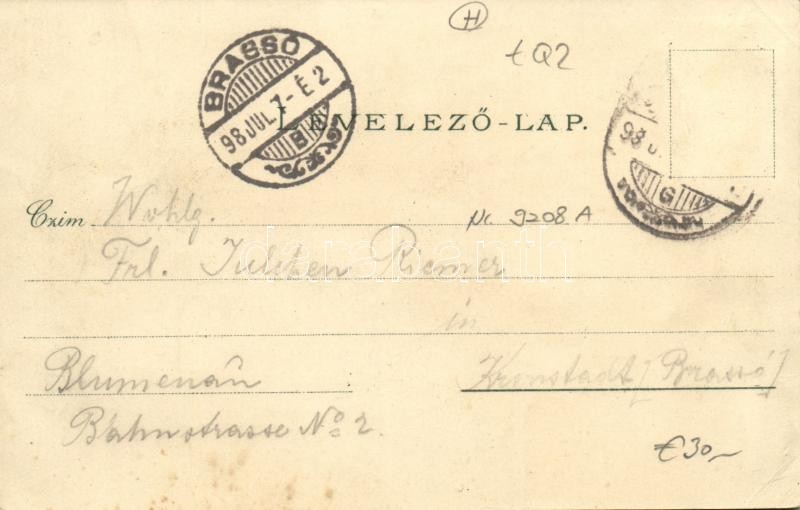 H
tQ2
BRASSÓ
98 JUL. 7-É 2
B
LEVELEZŐ-LAP.
98
G
Czim Wohlg.
Nr. 9208 A
Frl. Julchen Riemer
in
Blumenau
Kronstadt [Brassó]
Bahnstrasse No 2.
€30,-
darabanth